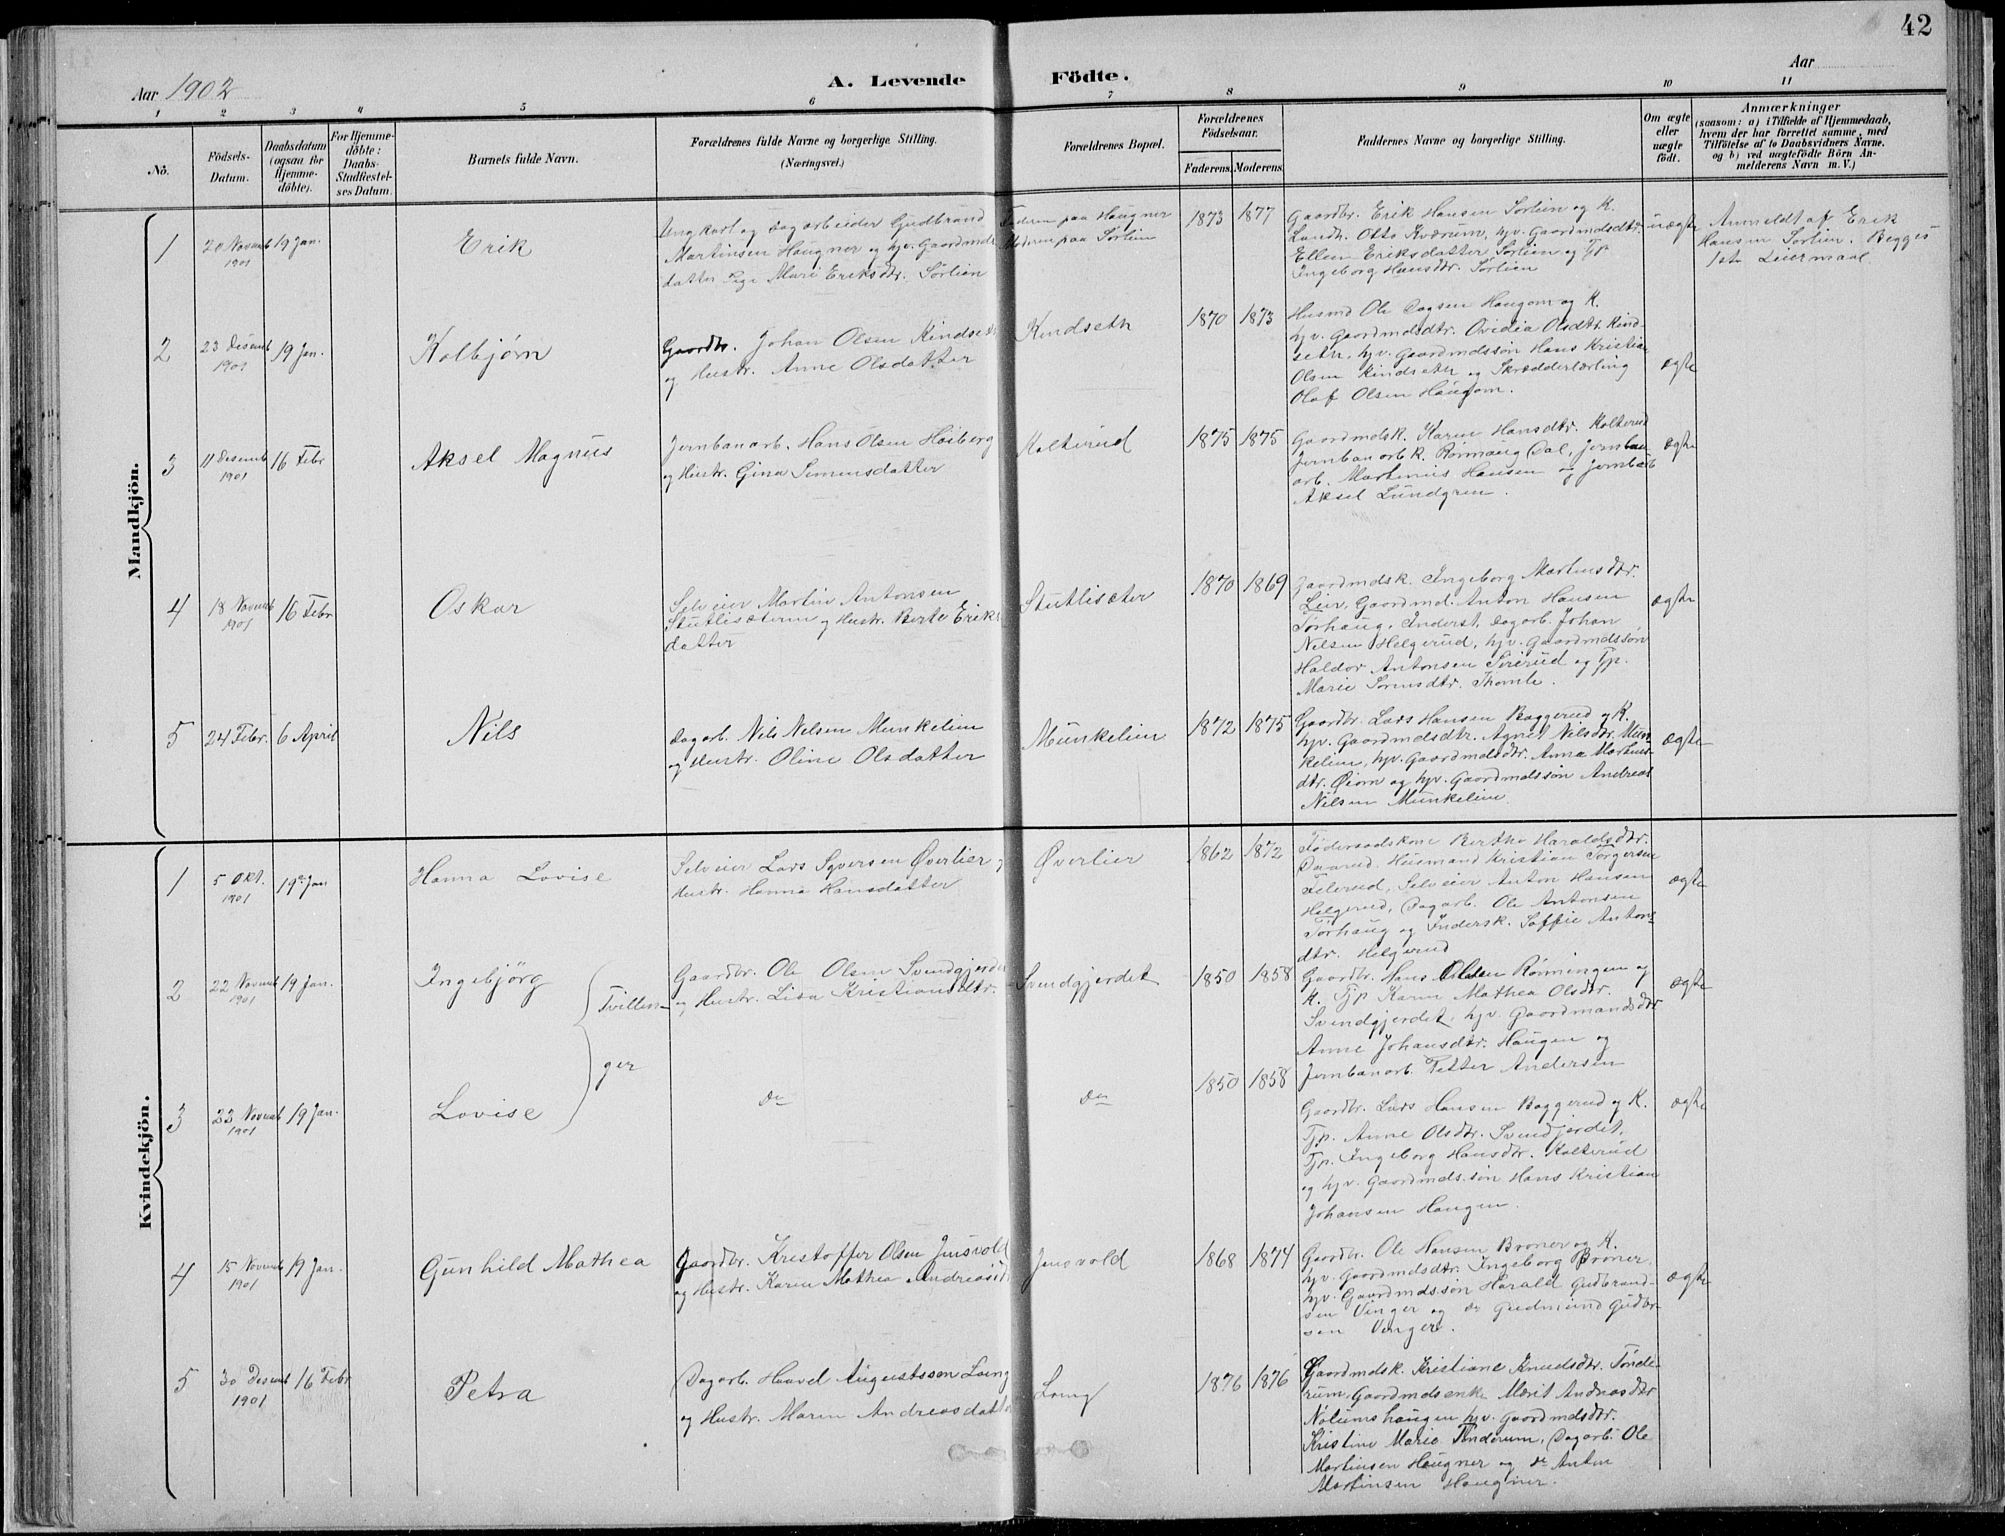 42
Aar 1902
A. Levende Födte.
Aar
1 2 3 4 5 6 7 8 9 10 11
No.
Födsels-Datum.
Daabsdatum (ogsaa for Hjemme-döbte).
For Hjemme-döbte: Daabs-Stadfæstel-ses Datum.
Barnets fulde Navn.
Forældrenes fulde Navne og borgerlige Stilling.
(Næringsvei.)
Forældrenes Bopæl.
Forældrenes Födselsaar.
Faderens. Moderens.
Faddernes Navne og borgerlige Stilling.
Om ægte eller uægte födt.
Anmærkninger
(saasom: a) i Tilfælde af Hjemmedaab,
hvem der har forrettet samme, med
Tilföielse af to Daabsvidners Navne.
og b) ved uægtefödte Börn An-
melderens Navn m. V.)
Mandkjön.
1
20 Novemb 1901
19 Jan.
Erik
Ungkarl og Dagarbeider Gudbrand
Martinsen Haugner og hjv. Gaardmds
datter Pige Mari Eriksdtr. Sørlien
Faderen paa Haugner
Moderen paa Sørlien
1873 1877
Gaardbr. Erik Hansen Sørlien og K.
Landh. Otto Kværum, hjv. Gaardmdsdtr.
Ellen Eriksdatter Sørlien og Tjp
Ingeborg Hansdtr. Sørlien
uægte
Anmeldt af Erik
Hansen Sørlien. Begges
1ste Leiermaal
2
23 Desemb 1901
19 Jan.
Kolbjørn
Gaardbr. Johan Olsen Kindseth
og Hustr. Anne Olsdatter
Kindseth
1870 1873
Husmd Ole Dagsen Haugom og K.
hjv. Gaardmdsdtr. Ovidia Olsdtr. Kind-
seth, hjv. Gaardmdssøn Hans Kristian
Olsen Kindseth og Skrædderlærling
Olaf Olsen Haugom.
ægte
3
11 Desemb 1901
16 Febr
Aksel Magnus
Jernbanarb. Hans Olsen Høiberg
og Hustr. Gina Simensdatter
Kolterud
1875 1875
Gaardmdsk. Karen Hansdtr. Kolterud
Jernbanarb K. Rønnaug Dal, Jernban
arb. Martinius Hansen og Jernbarb
Aksel Lundgren.
ægte
4
18 Novemb 1901
16 Febr
Oskar
Selveier Martin Antonsen
Stutlisæteren og Hustr. Berte Eriks
datter
Stutlisæter
1870 1869
Gaardmdsk. Ingeborg Martinsdtr.
Lier, Gaardmd. Anton Hansen
Torhaug, Inderst, Dagarb. Johan
Nilsen Helgerud, hjv. Gaardmdssøn
Haldor Antonsen Sørerud og Tjp.
Marie Sørensdtr. Thomle.
ægte
5
24 Febr.
6 April
Nils
Dagarb. Nils Nilsen Munkelien
og Hustr. Oline Olsdatter
Munkelien
1872 1875
Gaardbr. Lars Hansen Baggerud og K.
hjv. Gaardmdsdtr. Agnet Nilsdtr. Mun-
kelien, hjv. Gaardmdsdtr. Anna Martins-
dtr. Øiom og hjv. Gaardmdssøn Andreas
Nilsen Munkelien
ægte
Kvindekjön.
1
5 Okt. 1901
19de Jan
Hanna Lovise
Selveier Lars Syversen Øverlier og
Hustr. Hanna Hansdatter
Øverlier
1862 1872
Føderaadskone Berthe Haraldsdtr.
Husmand Kristian Torgersen
Felerud, Selveier Anton Hansen
Helgerud, Dagarb. Ole Antonsen
Torhaug og Indersk. Soffie Antons
dtr. Helgerud
ægte
2
22 Novemb 1901
19 Jan.
Ingebjörg
Tvillin-
ger
Gaardbr. Ole Olsen Svendgjerdet
og Hustr. Lisa Kristiansdtr.
Svendgjerdet
1850 1858
Gaardbr. Hans Olsen Rönningen og
K. Tjp Karen Mathea Olsdtr.
Svendgjerdet, hjv. Gaardmandsdtr
Anne Johansdtr. Haugen og
Jernbanarb. Petter Andersen
ægte
3
23 Novemb 1901
19 Jan.
Lovise
Do
Do
1850 1858
Gaardbr. Lars Hansen Baggerud og K.
Tjp. Anne Olsdtr. Svendjerdet,
Tjp. Ingeborg Hansdtr. Kolterud
og hjv. Gaardmdssøn Hans Kristian
Johansen Haugen.
ægte
4
15 Novemb 1901
19 Jan.
Gunhild Mathea
Gaardbr. Kristoffer Olsen Jensvold
og Hustr. Karen Mathea Andreasdt
Jensvold
1868 1874
Gaardbr. Ole Hansen Broner og K.
hjv. Gaardmdsdtr. Ingeborg Broner,
hjv. Gaardmdssøn Harald Gudbrand-
sen Vinger og do Gudmund Gudbr-
sen Vinger.
ægte
5
30 Desemb 1901
16 Febr
Petra
Dagarb. Haavel Augustsson Loeng
og Hustr. Maren Andreasdatter
Loeng
1876 1876
Gaardmdsk. Kristiane Knudsdtr. Tönde-
rum, Gaardmdsenke Marit Andreasdtr
Nolumshaugen hjv. Gaardmdsdtr.
Kristine Marie Tönderum, Dagarb. Ole
Martinsen Haugner og do Anton
Martinsen Haugner.